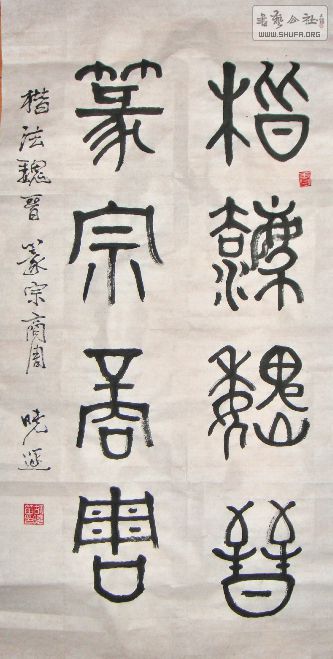 楷灋魏晉
篆宗商周
楷法魏晋 篆宗商周 晓逐
書藝公社
WWW.SHUFA.ORG